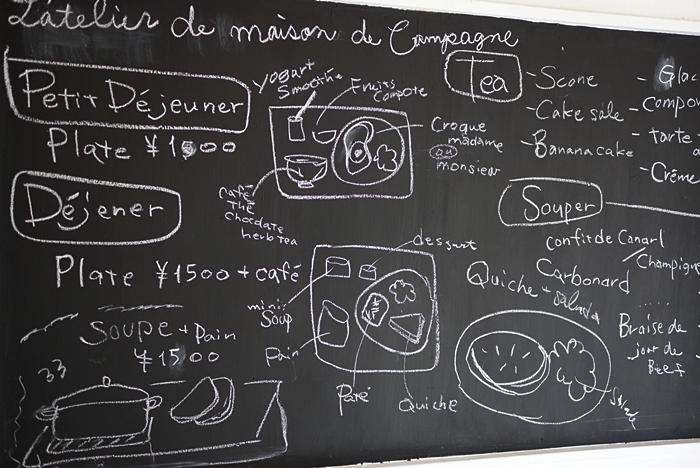 L'atelier de maison de Campagne
Petit Déjeuner
Plate ¥1500
Yogart
Smoothie
Fruits
Compote
Croque
madame
ou
monsieur
Café
Thé
chocolate
herb tea
Déjener
Plate ¥1500 + café
Soupe + Pain
¥1500
dessert
mini
Soup
Pain
Paté
Quiche
Tea
- Scone
- Cake sale
- Banana cake
- Glac
- Compo
- tarte
- Crème
Souper
confit de Canarl
Champign
Carbonard
Quiche + salada
Braise de
jour de
Beef